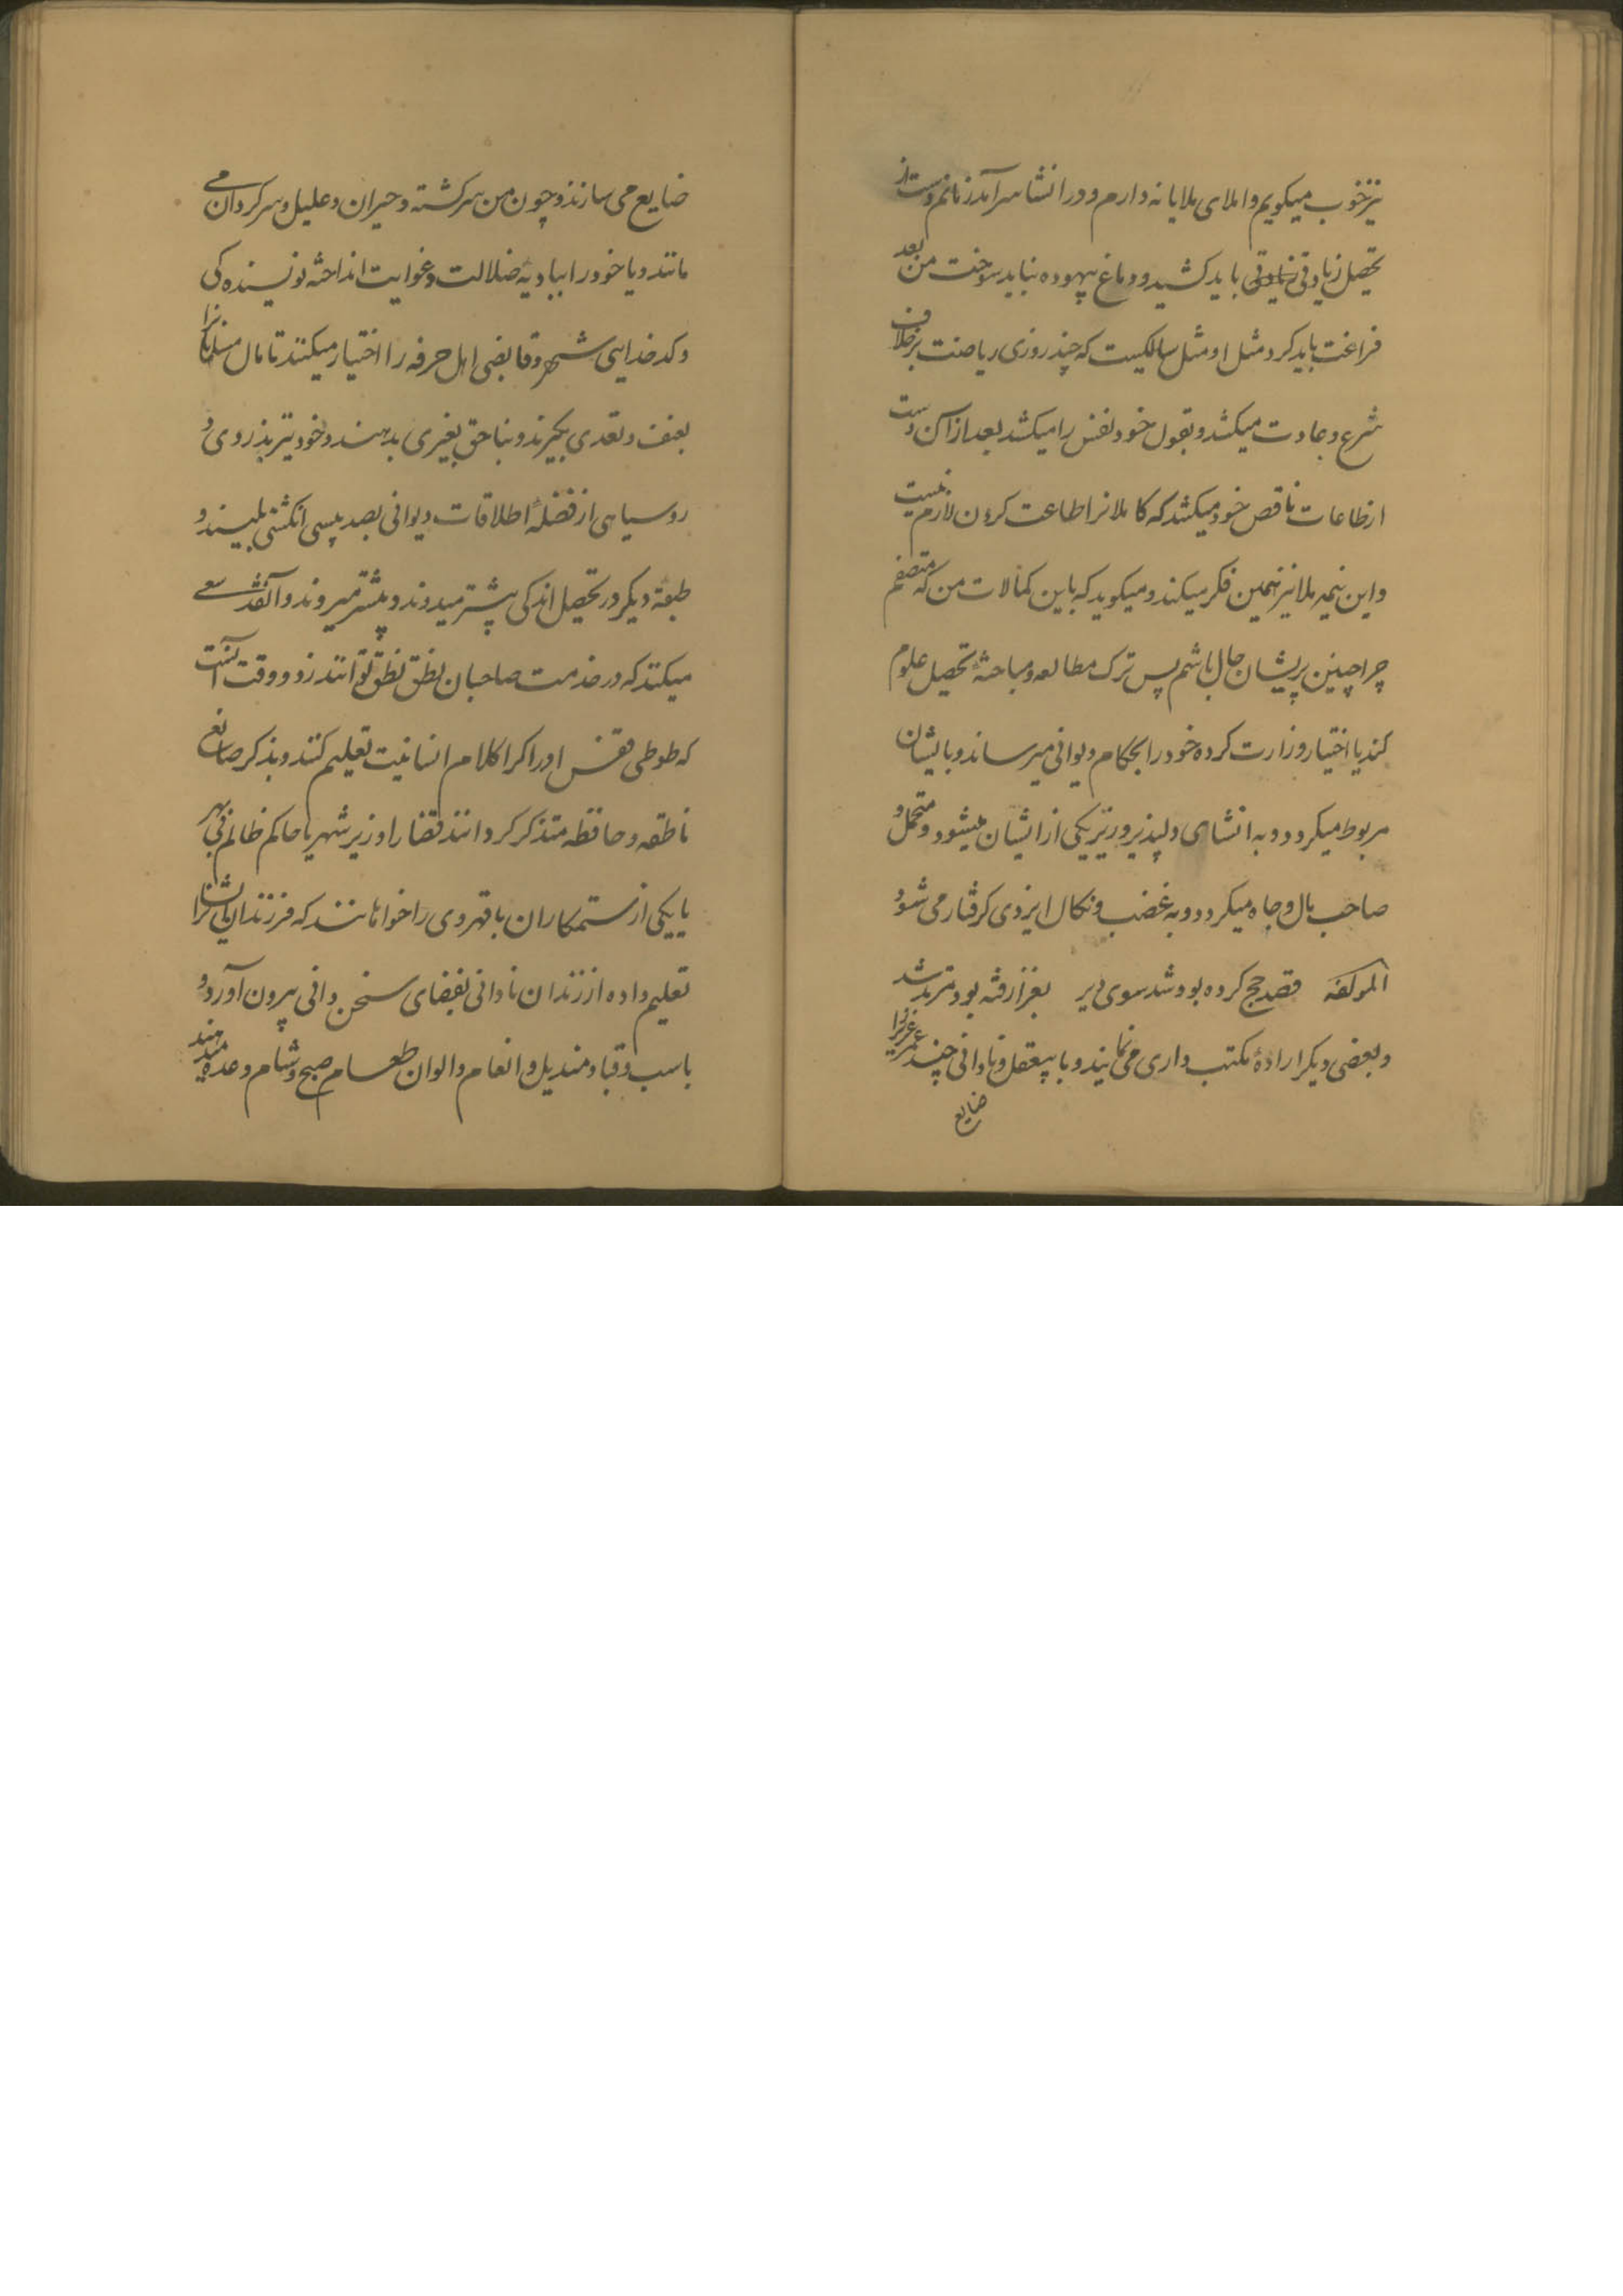 نیز خوب میکویم و املای ملایانه دارم و در انشا سرآمد زمانم دست از
تحصیل زیادتی باید کشید و دماغ بیهوده نباید سوخت من بعد
فراغت باید کرد مثل او مثل سالکیست که چند روزی ریاضت برخلاف
شرع و عادت میکشد و بقول خود نفس را میکشد بعد از آن دست
از طاعات ناقص خود میکشد که کاملانرا طاعت کردن لازم نیست
و این نیمه ملا نیز همین فکر میکند و میکوید که باین کمالات من که متصفم
چرا چنین پریشان حال باشم پس ترک مطالعه و مباحثهٔ تحصیل علوم
کند یا اختیار وزارت کرده خود را بحکام دیوانی میرساند و بایشان
مربوط میکردد و به انشای دلپذیر وزیر یکی از ایشان میشود و متحمل و
صاحب مال و جاه میکردد و به غضب و نکال ایزدی کرفتار می شود
لمولفه قصد حج کرده بود شد سوی دیر بغزا رفته بود مرتد شد
و بعضی دیکر ارادهٔ مکتب داری می نمایند و با بیعقل و نادانی چند عمر عزیز را
ضایع
ضایع می سازند و چون من سرکشته و حیران و علیل و سرکردان می
مانند و یا خود را ببادیهٔ ضلالت و غوایت انداخته نویسنده کی
و کدخدایی شهر و قابضی اهل حرفه را اختیار میکنند تا مال مسلمانانرا
بعنف و تعدی بکیرند و بناحق بغیری بدهند و خود نیز بزردروی و
روسیاهی از فضلهٔ اطلاقات دیوانی بصد بیسی انکشتی بلیسند و
طبقهٔ دیکر در تحصیل اندکی بیشتر میدوند و پیشتر میروند و آنقدر سعی
میکنند که در خدمت صاحبان نطق نطق توانند زد و وقت آنست
که طوطی قفس اوراکرا کلام انسانیت تعلیم کنند و بذکر صانع
ناطقه و حافظه متذکر کردانند قضا را وزیر شهر یا حاکم ظالم بی
یا یکی از ستمکاران باقهر وی را خواهانند که فرزندان ایشانرا
تعلیم داده از زندان نادانی بفضای سخن دانی بیرون آورد و
باسب و قبا و مندیل و انعام و الوان طعام صبح و شام وعده میدهند